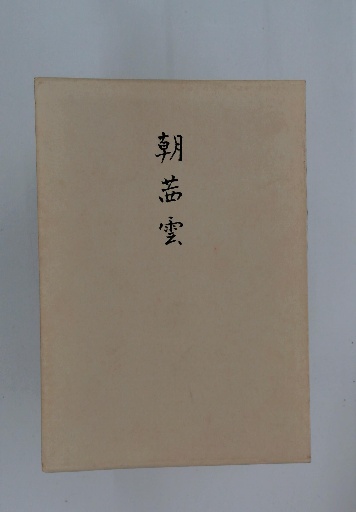 朝茜雲